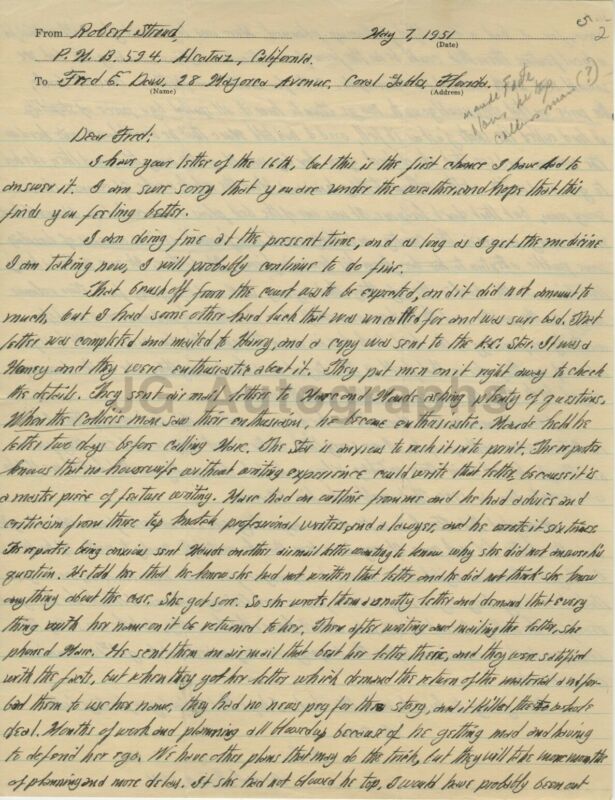 5/2
From Robert Stroud, May 7, 1951
(Date)
P. M. B. 594, Alcatraz, California.
To Fred E. Daw, 28 Majorca Avenue, Coral Gables, Florida.
(Name) (Address)
Maude
blew her top
Colliers man (?)
Dear Fred:
I have your letter of the 16th, but this is the first chance I have had to
answer it. I am sure sorry that you are under the weather, and hope that this
finds you feeling better.
I am doing fine at the present time, and as long as I get the medicine
I am taking now, I will probably continue to do fine.
That brush off from the court was to be expected, and it did not amount to
much, but I had some other hard luck that was uncalled for and was sure bad. That
letter was completed and mailed to and a copy was sent to the K.C. Star. It was a
and they were enthusiastic about it. They put men on it right away to check
the details. They sent air mail letters to Marc and Maude asking plenty of questions.
When the Colliers man saw their enthusiasm, he became enthusiastic. Maude held he
letter two days before calling Marc. The Star is anxious to rush it into print. The reporter
knows that no housewife without writing experience could write that letter, because it is
a master piece of feature writing. Marc had an outline from me and he had advice and
criticism from three top professional writers and a lawyer, and he wrote it six times.
The reporter being anxious sent Maude another air mail letter wanting to know why she did not answer his
question. He told her that he knew she had not written that letter and he did not think she knew
anything about the case. She got sore. So she wrote them a snotty letter and demand that every
thing with her name on it be returned to her. Then after writing and mailing the letter, she
phoned Marc. He sent them an air mail that beat her letter there, and they were satisfied
with the facts, but when they got her letter which demand the return of the material and for-
bad them to use her name, they had no news peg for the story, and it killed the
deal. Months of work and planning all blowed up because of he getting mad and having
to defend her ego. We have other plans that may do the trick, but they will take more months
of planning and more delay. If she had not blowed he top, I would have probably been out
JG Autographs